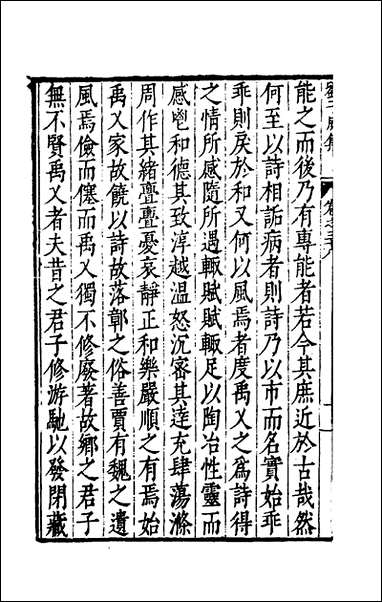 能之而後乃有專能者若今其庶近於古哉然
何至以詩相詬病者則詩乃以市而名實始乖
乖則戾於和又何以風焉者度禹乂之為詩得
之情所感隨所遇輙賦賦輙足以陶冶性靈而
感鬯和德其致淳越溫怒沉密其逹充肆蕩滌
周作其緒亹亹憂哀靜正和樂嚴順之有焉始
禹乂家故饒以詩故落鄣之俗善賈有魏之遺
風焉儉而僿而禹乂獨不修廢著故鄉之君子
無不賢禹乂者夫昔之君子修游馳以發閉藏